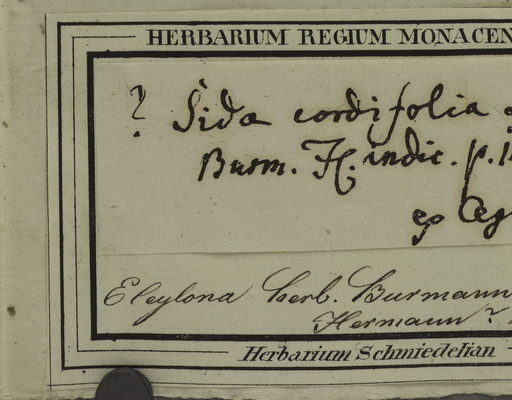 HERBARIUM REGIUM MONACEN
? Sida cordifolia
Burm. Fl. indic. p. 1
Herb. Burmann
Hermann ?
Herbarium Schmiedelian